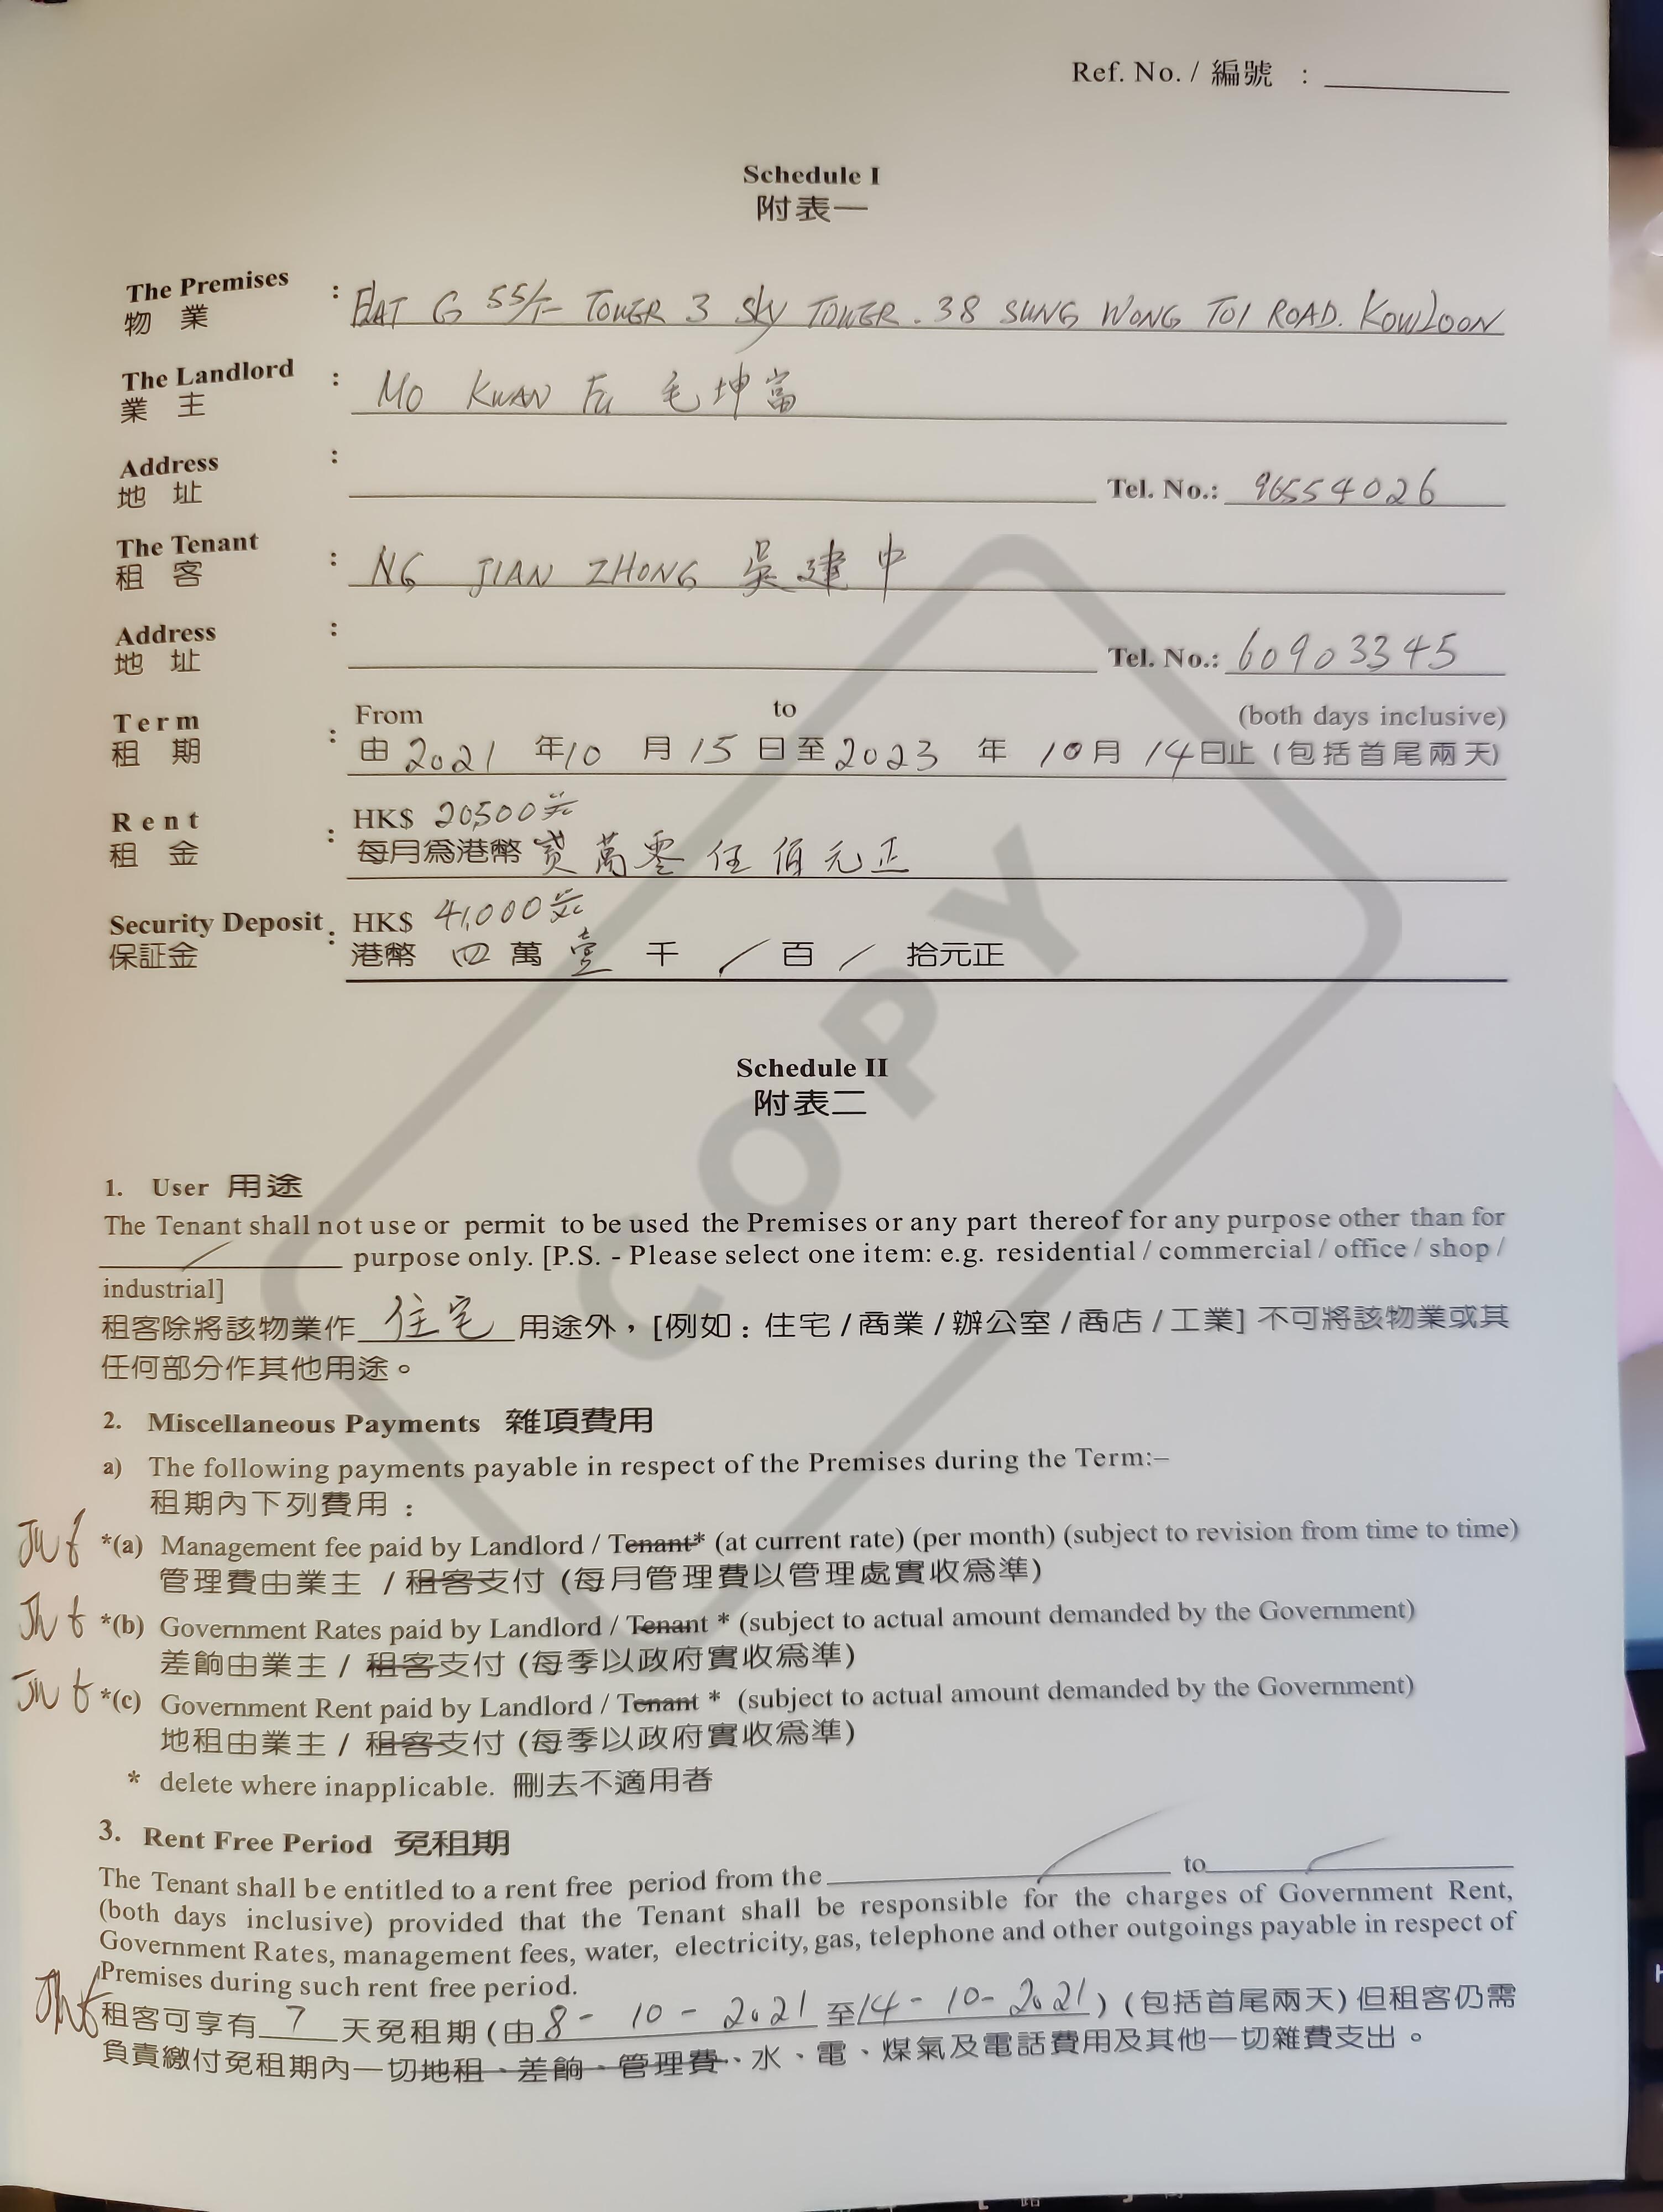 Ref. No. / 編號 :
Schedule I
附表一
The Premises : FLAT G 55/F TOWER 3 SKY TOWER. 38 SUNG WONG TOI ROAD. KOWLOON
物 業
The Landlord : MO KWAN FU 毛坤富
業 主
Address :
地 址 Tel. No.: 96554026
The Tenant : NG JIAN ZHONG 吳建中
租 客
Address :
地 址 Tel. No.: 60903345
Term From to (both days inclusive)
租 期 : 由 2021 年 10 月 15 日至 2023 年 10 月 14 日止 (包括首尾兩天)
Rent : HK$ 20,500元
租 金 每月爲港幣 貳萬零伍佰元正
Security Deposit : HK$ 41,000元
保証金 港幣 四 萬 壹 千 / 百 / 拾元正
COPY
Schedule II
附表二
1. User 用途
The Tenant shall not use or permit to be used the Premises or any part thereof for any purpose other than for
/ purpose only. [P.S. - Please select one item: e.g. residential / commercial / office / shop /
industrial]
租客除將該物業作 住宅 用途外，[例如 : 住宅 / 商業 / 辦公室 / 商店 / 工業] 不可將該物業或其
任何部分作其他用途。
2. Miscellaneous Payments 雜項費用
a) The following payments payable in respect of the Premises during the Term:–
租期內下列費用 :
*(a) Management fee paid by Landlord / Tenant* (at current rate) (per month) (subject to revision from time to time)
管理費由業主 / 租客支付 (每月管理費以管理處實收爲準)
*(b) Government Rates paid by Landlord / Tenant * (subject to actual amount demanded by the Government)
差餉由業主 / 租客支付 (每季以政府實收爲準)
*(c) Government Rent paid by Landlord / Tenant * (subject to actual amount demanded by the Government)
地租由業主 / 租客支付 (每季以政府實收爲準)
* delete where inapplicable. 刪去不適用者
3. Rent Free Period 免租期
The Tenant shall be entitled to a rent free period from the / to /
(both days inclusive) provided that the Tenant shall be responsible for the charges of Government Rent,
Government Rates, management fees, water, electricity, gas, telephone and other outgoings payable in respect of
Premises during such rent free period.
租客可享有 7 天免租期 (由 8 - 10 - 2021 至 14 - 10 - 2021 ) (包括首尾兩天) 但租客仍需
負責繳付免租期內一切地租、差餉、管理費、水、電、煤氣及電話費用及其他一切雜費支出。